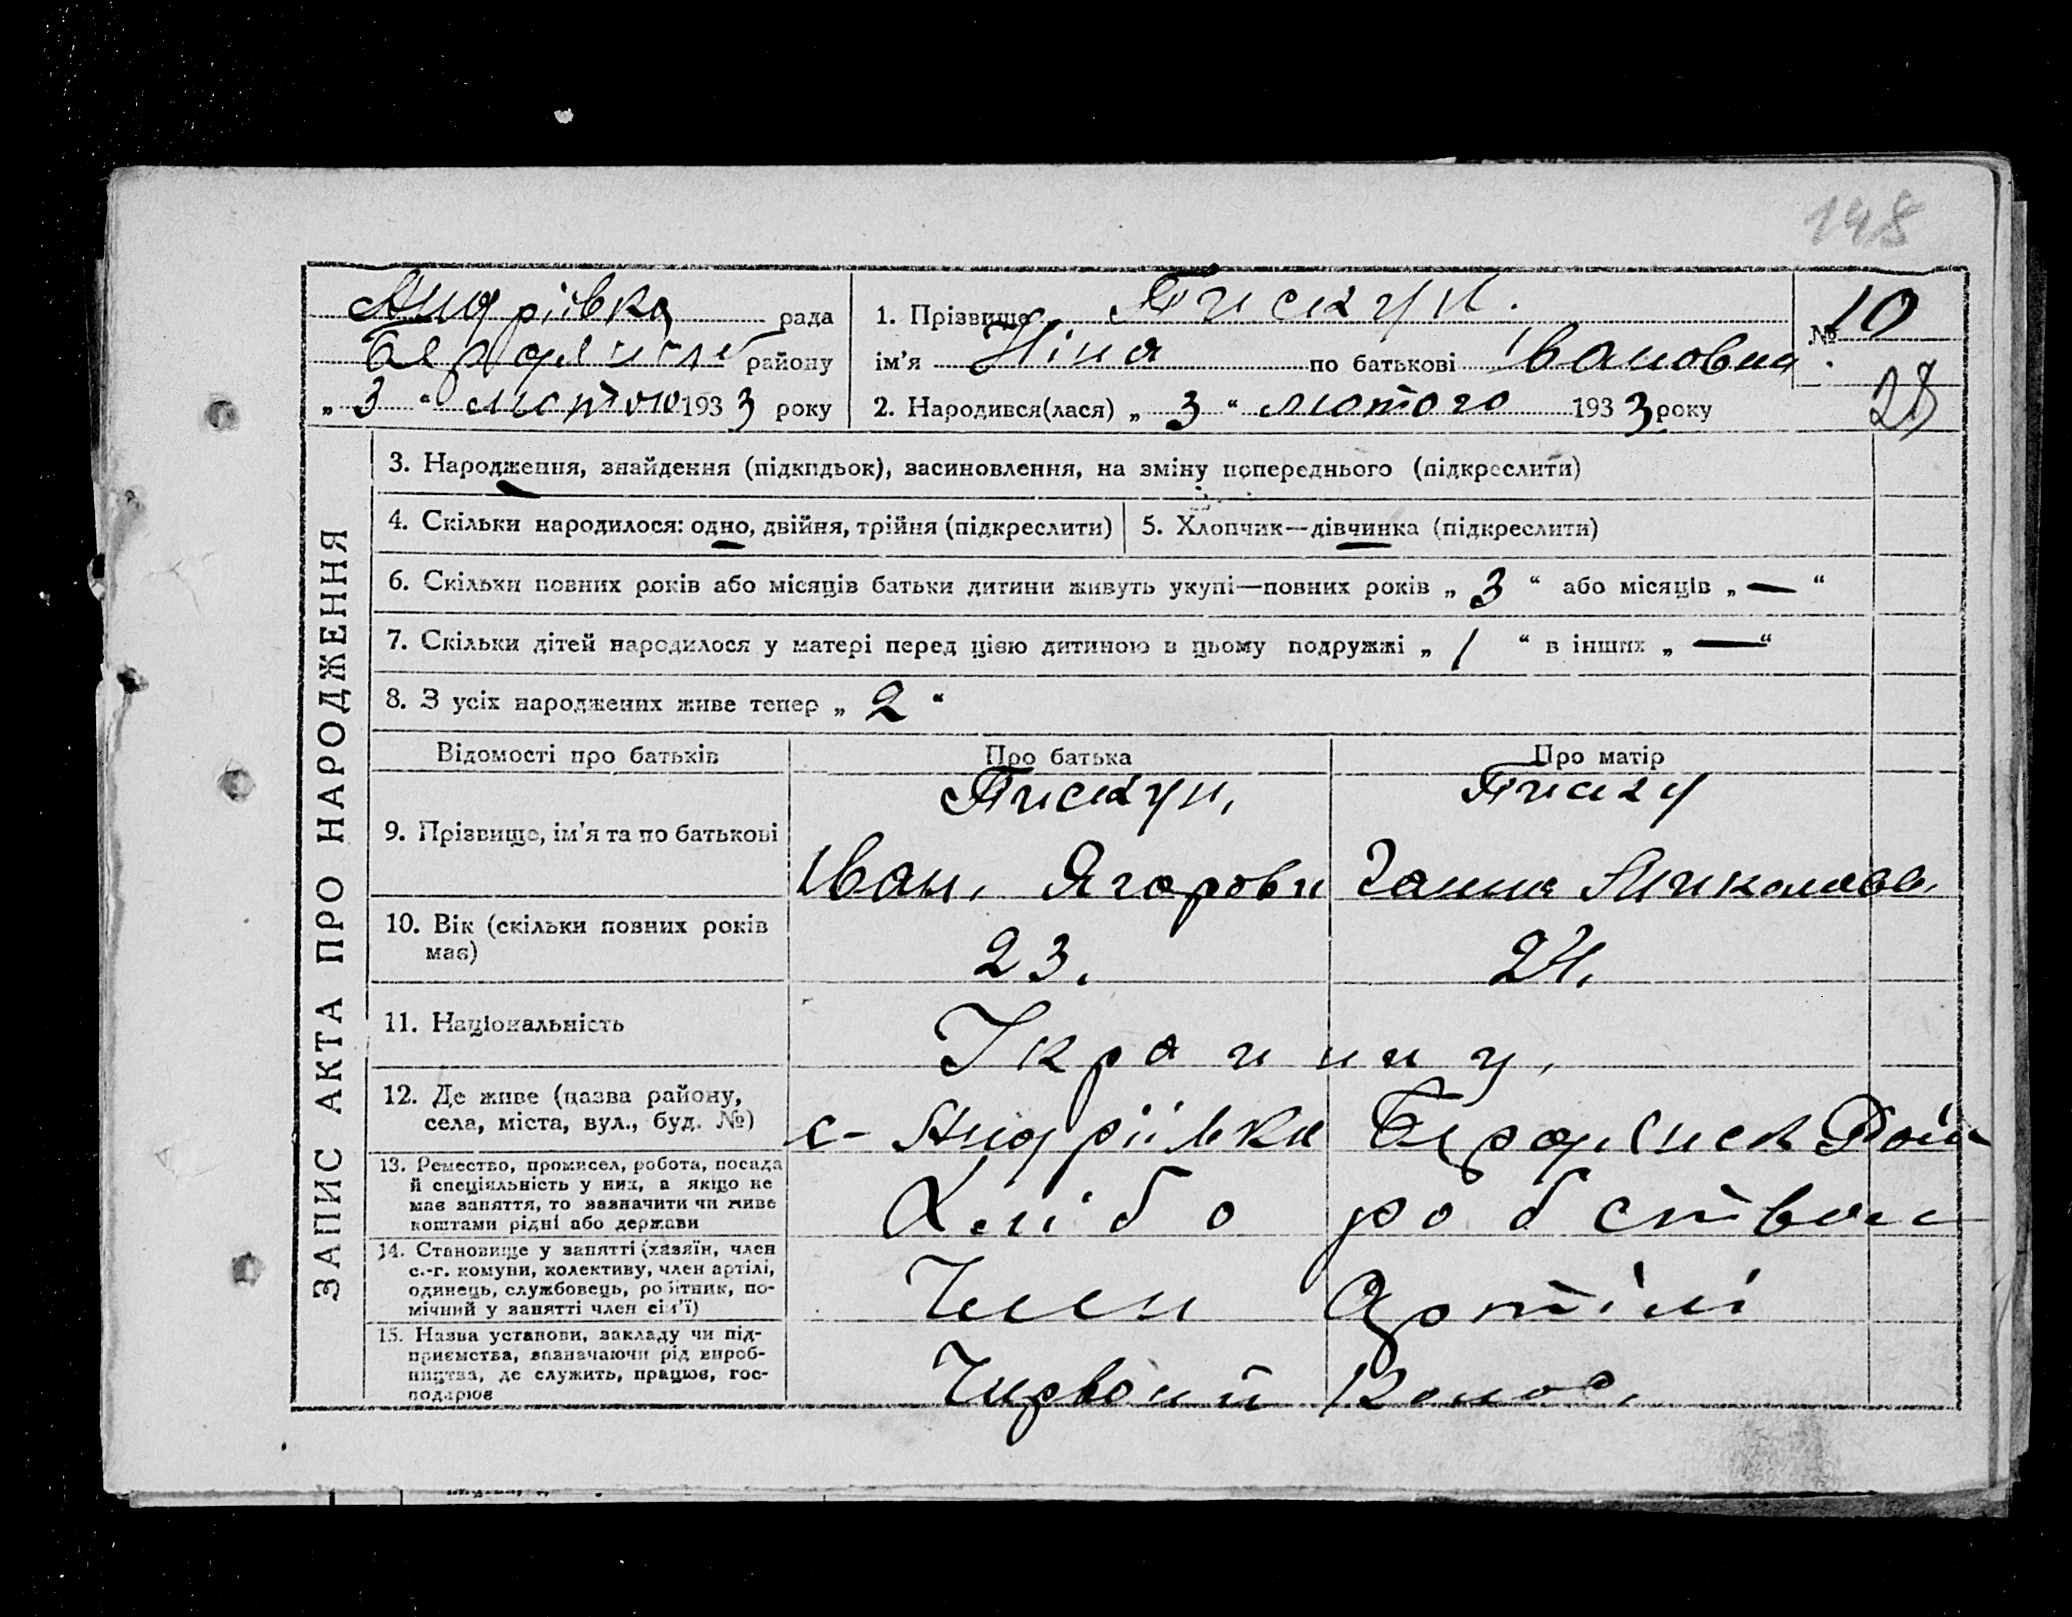 148
Андрівка рада
Бердянське району
„ 3 “ лютого 193 3 року
1. Прізвище Пискун.
ім'я Ніна по батькові Івановна
2. Народився(лася) „ 3 “ лютого 193 3 року
№ 10
28
ЗАПИС АКТА ПРО НАРОДЖЕННЯ
3. Народження, знайдення (підкидьок), засиновлення, на зміну попереднього (підкреслити)
4. Скільки народилося: одно, двійня, трійня (підкреслити)
5. Хлопчик—дівчинка (підкреслити)
6. Скільки повних років або місяців батьки дитини живуть укупі—повних років „ 3 “ або місяців „ — “
7. Скільки дітей народилося у матері перед цією дитиною в цьому подружжі „ 1 “ в інших „ — “
8. З усіх народжених живе тепер „ 2 “
Відомості про батьків Про батька Про матір
9. Прізвище, ім'я та по батькові
Пискун, Писку
Іван, Ягорови Ганна Миколаєв,
10. Вік (скільки повних років
має)
23. 24.
11. Національність
Украиниу,
12. Де живе (назва району,
села, міста, вул., буд. №)
с- Андріївки Бердянск Рай
13. Ремество, промисел, робота, посада
й спеціяльність у них, а якщо не
має заняття, то зазначити чи живе
коштами рідні або держави
Хлібо робством
14. Становище у занятті (хазяїн, член
с.-г. комуни, колективу, член артілі,
одинець, службовець, робітник, по-
мічний у занятті член сім'ї)
Член Артілі
15. Назва установи, закладу чи під-
приємства, зазначаючи рід вироб-
ництва, де служить, працює, гос-
подарює
Чирвоний Колос.